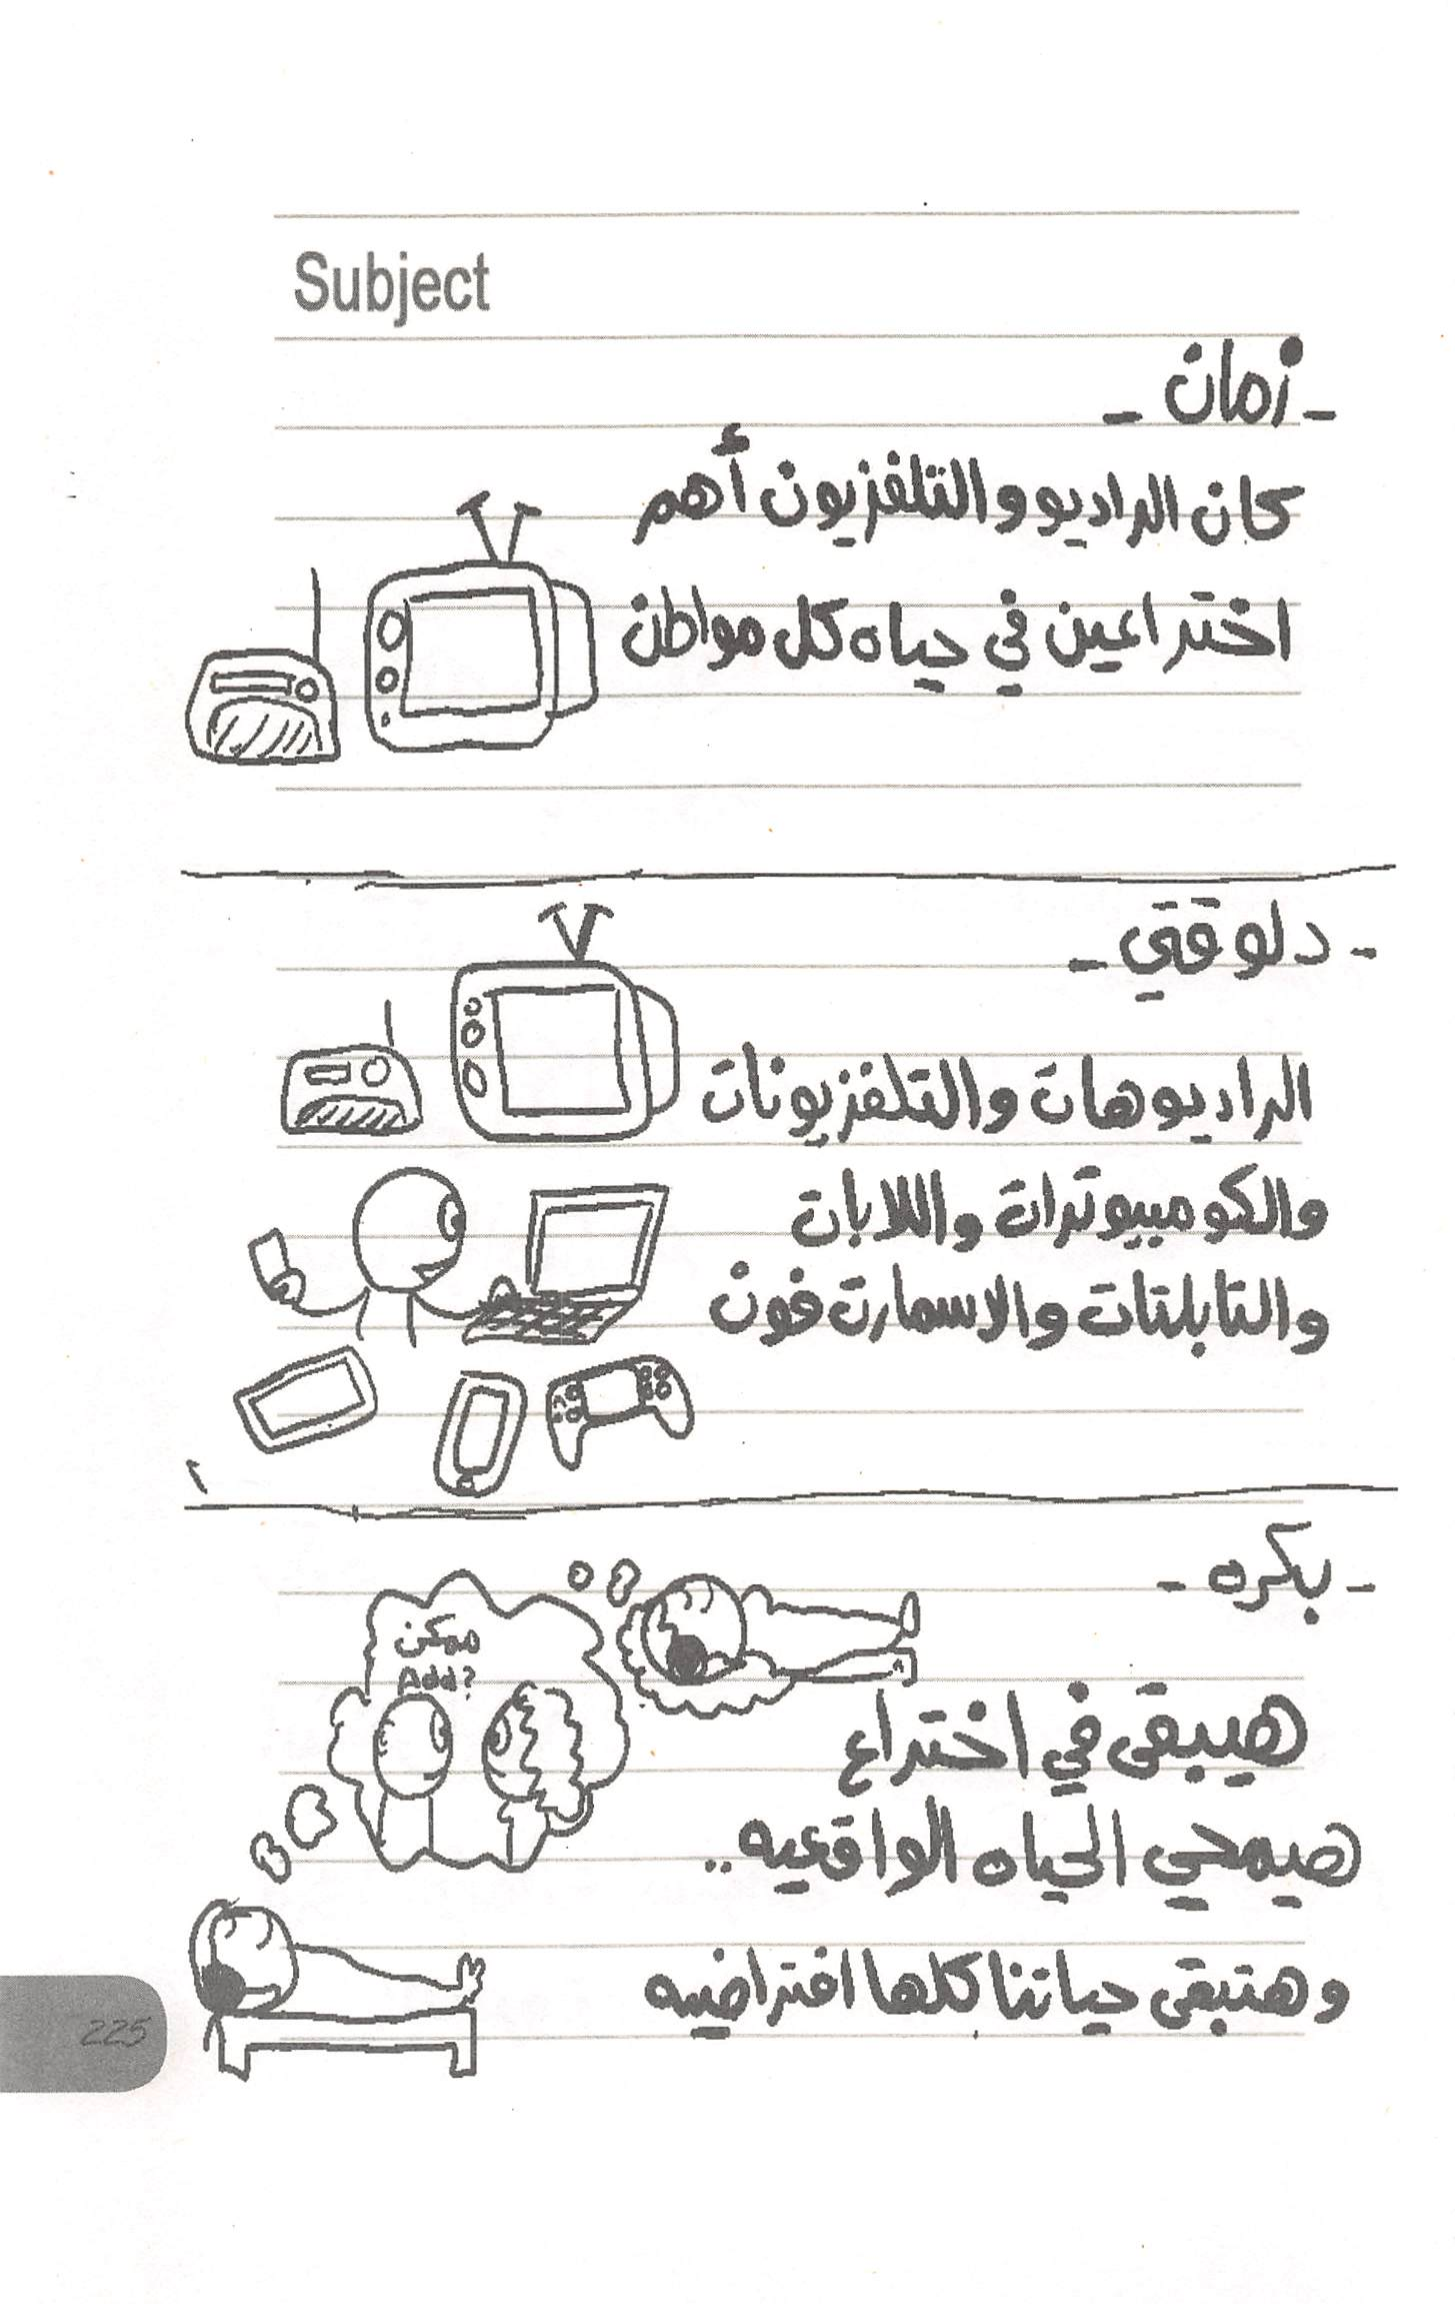 Subject
- زمان -
كان الراديو والتلفزيون أهم
اختراعين في حياه كل مواطن
- دلوقتي -
الراديوهات والتلفزيونات
والكومبيوترات واللابات
والتابلتات والاسمارت فون
- بكره -
ممكن
Add?
هيبقى في اختراع
هيمحي الحياه الواقعيه..
وهتبقى حياتنا كلها افتراضيه
225